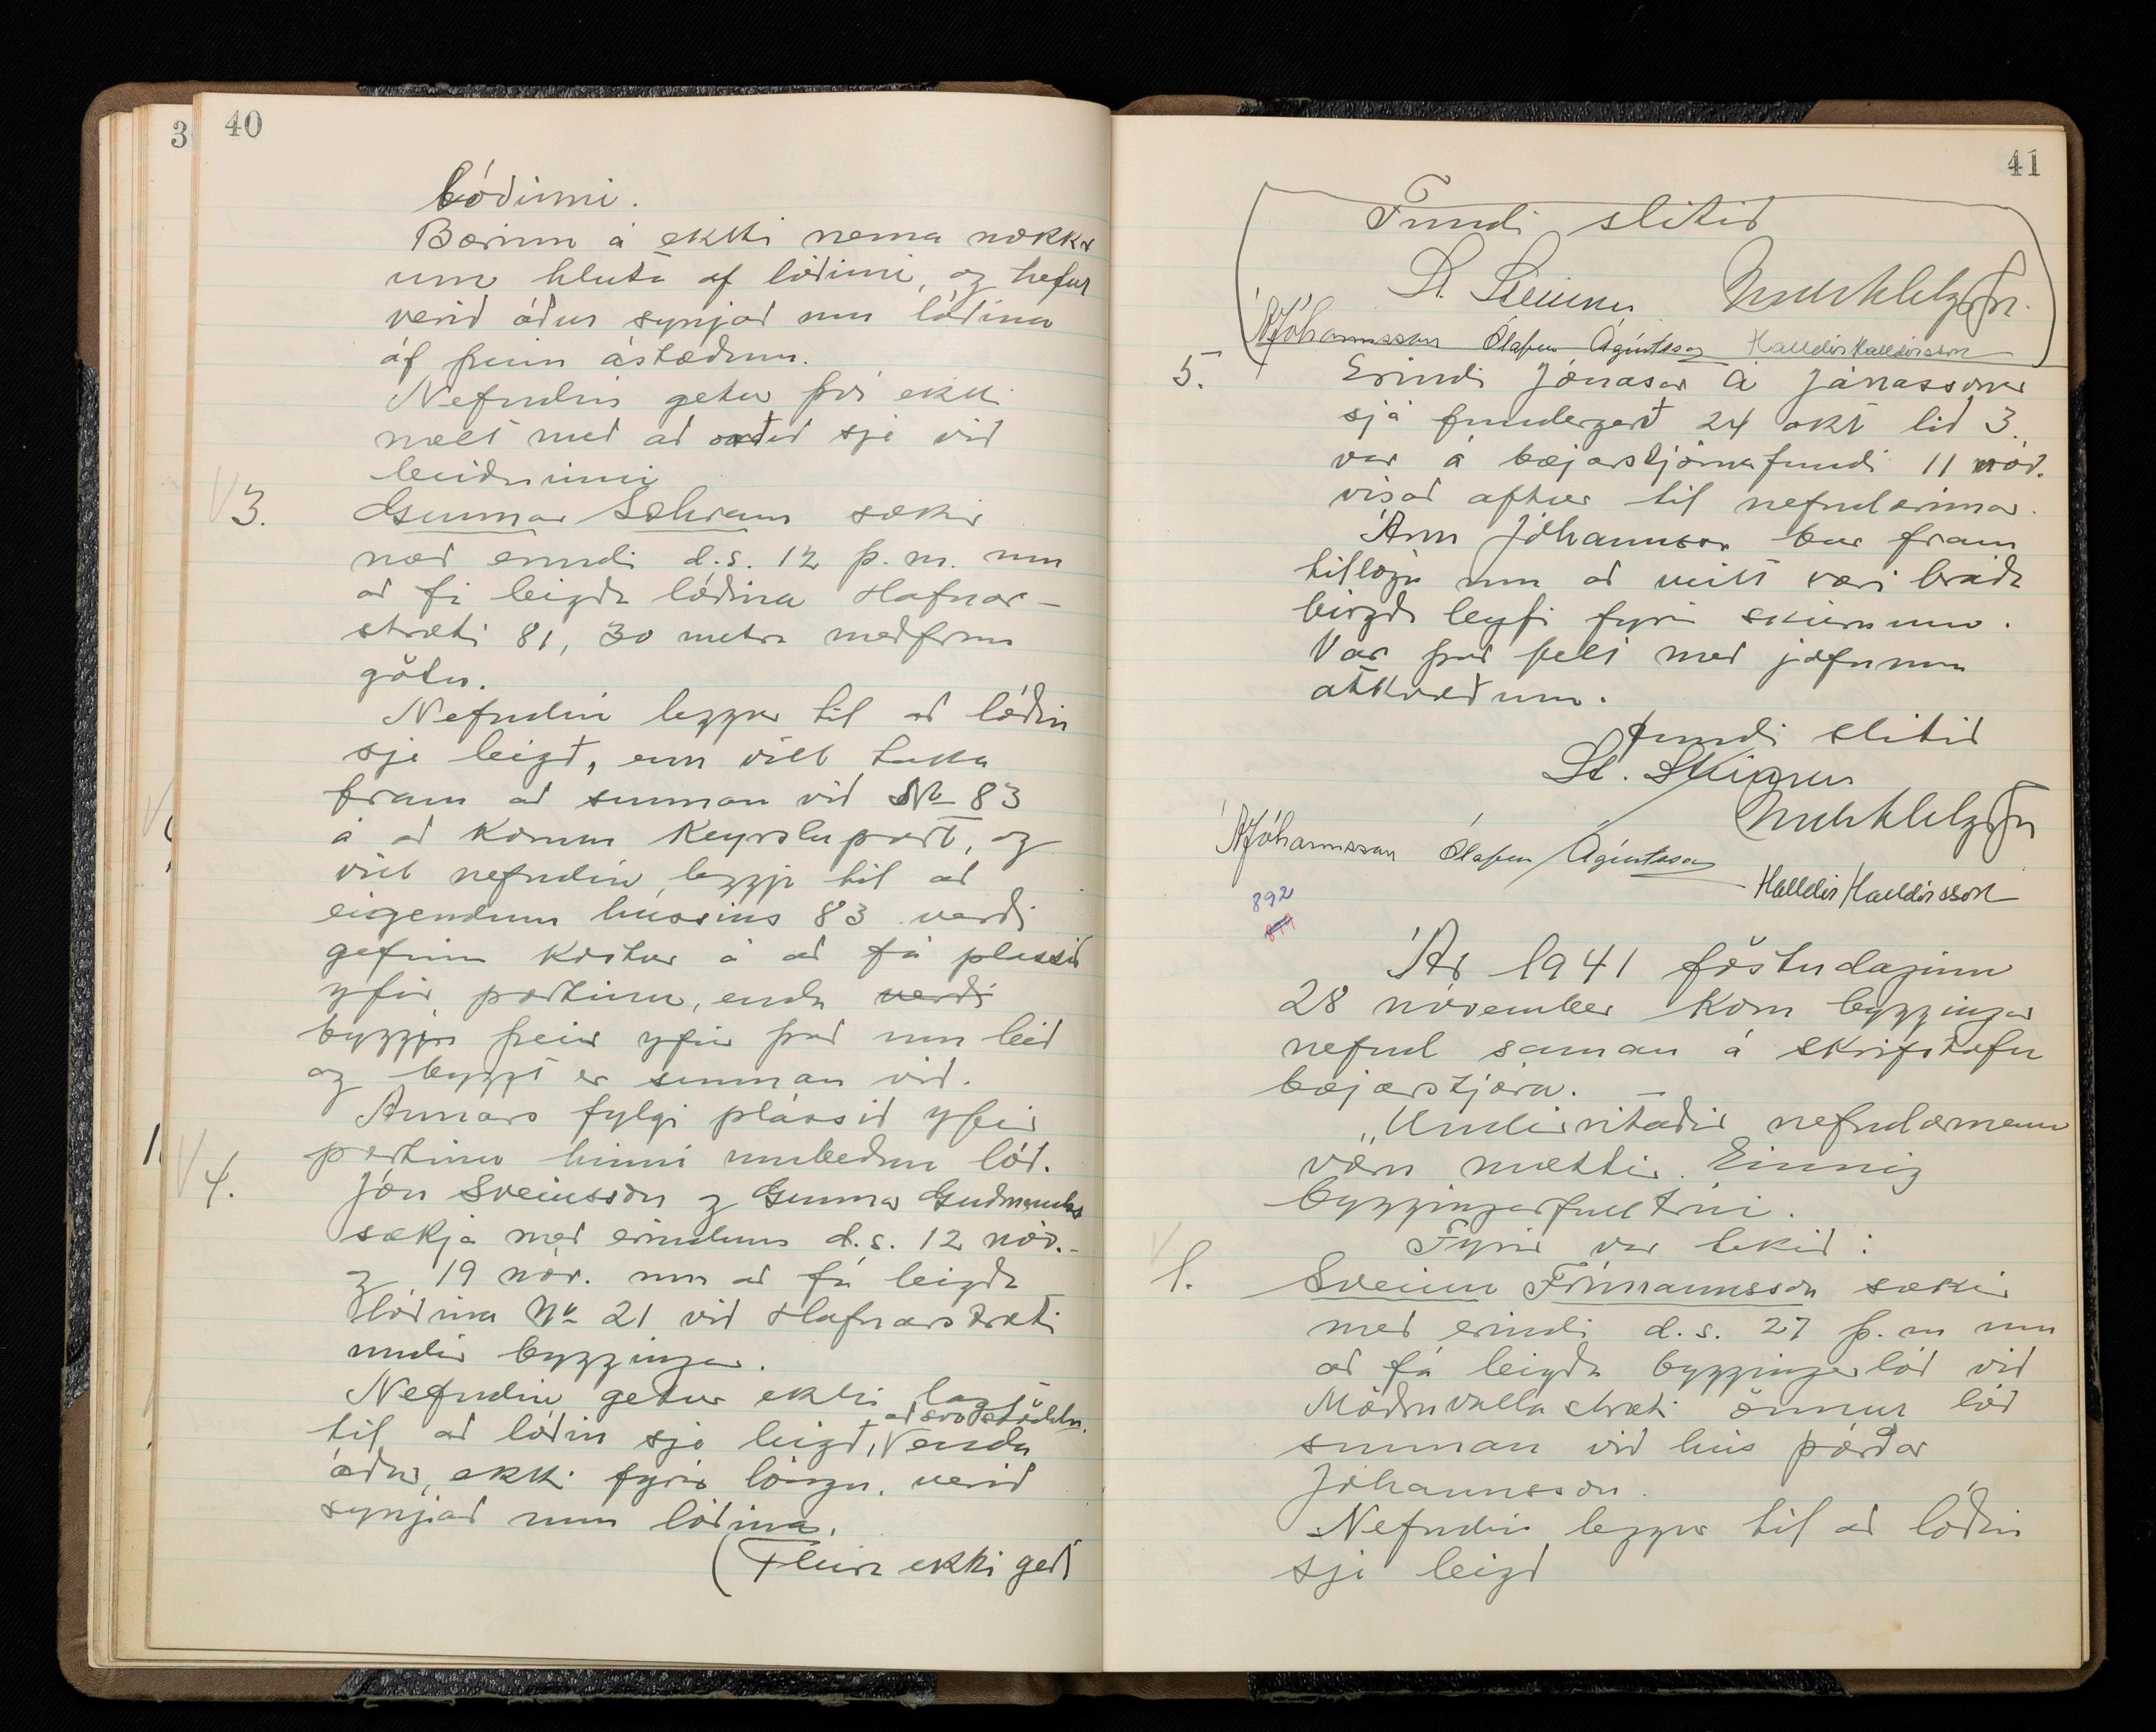 3
40
lóðinni.
Bærinn á ekki nema nokkr
um hluta af lóðinni, og hefur
verið áður synjað um lóðina
af þeim ástæðum.
Nefndin getur því ekki
mælt með að orðið sje við
beiðninni
3. Gunnar Schram sækir
með erindi d.s. 12 þ.m. um
að fá leigða lóðina Hafnar-
stræti 81, 30 metra meðfram
götu.
Nefndin leggur til að lóðin
sje leigð, enn vill taka
fram að sunnan við No 83
á að koma keyrsluport, og
vill nefndin leggja til að
eigendum hússins 83 verði
gefinn kostur á að fá plássið
yfir portinu, enda verði
byggja þeir yfir það um leið
og byggt er sunnan við.
Annars fylgi plássið yfir
portinu hinni umbeðnu lóð.
4. Jón Sveinsson og Gunnar Guðmundss
sækja með erindum d.s. 12 nóv.-
og 19 nóv. um að fá leigða
lóðina No 21 við Hafnarstræti
undir byggingar.
Nefndin getur ekki lagt
að svo stöddu.
til að lóðin sje leigð, enda
áður, ekki fyrir löngu, verið
synjað um lóðina.
(Fleira ekki gert
41
Fundi slitið
St. Steinsen
ÁJóhannsson Ólafur Ágústsson Halldór Halldórsson
5. Erindi Jónasar Á Jónassonar
sjá fundergerð 24 okt lið 3.
var á bæjarstjórnarfundi 11 nóv.
vísað aftur til nefndarinnar.
Árni Jóhannsson bar fram
tillögu um að veitt væri bráða
birgða leyfi fyrir skúrnum.
Var það fellt með jöfnum
atkvæðum.
Fundi slitið
St. Steinsen
ÁJóhannsson Ólafur Ágústsson
Halldór Halldórsson
892
Ár 1941 föstudaginn
28 nóvember kom bygginga
nefnd saman á skrifstofu
bæjarstjóra.
Undirritaðir nefndarmenn
voru mættir. Einnig
byggingarfulltrúi.
Fyrir var tekið:
1. Sveinn Frímannsson sækir
með erindi d.s. 27 þ.m um
að fá leigða byggingarlóð við
Möðruvallastræti önnur lóð
sunnan við hús Þórðar
Jóhannssonar.
Nefndin leggur til að lóðin
sje leigð